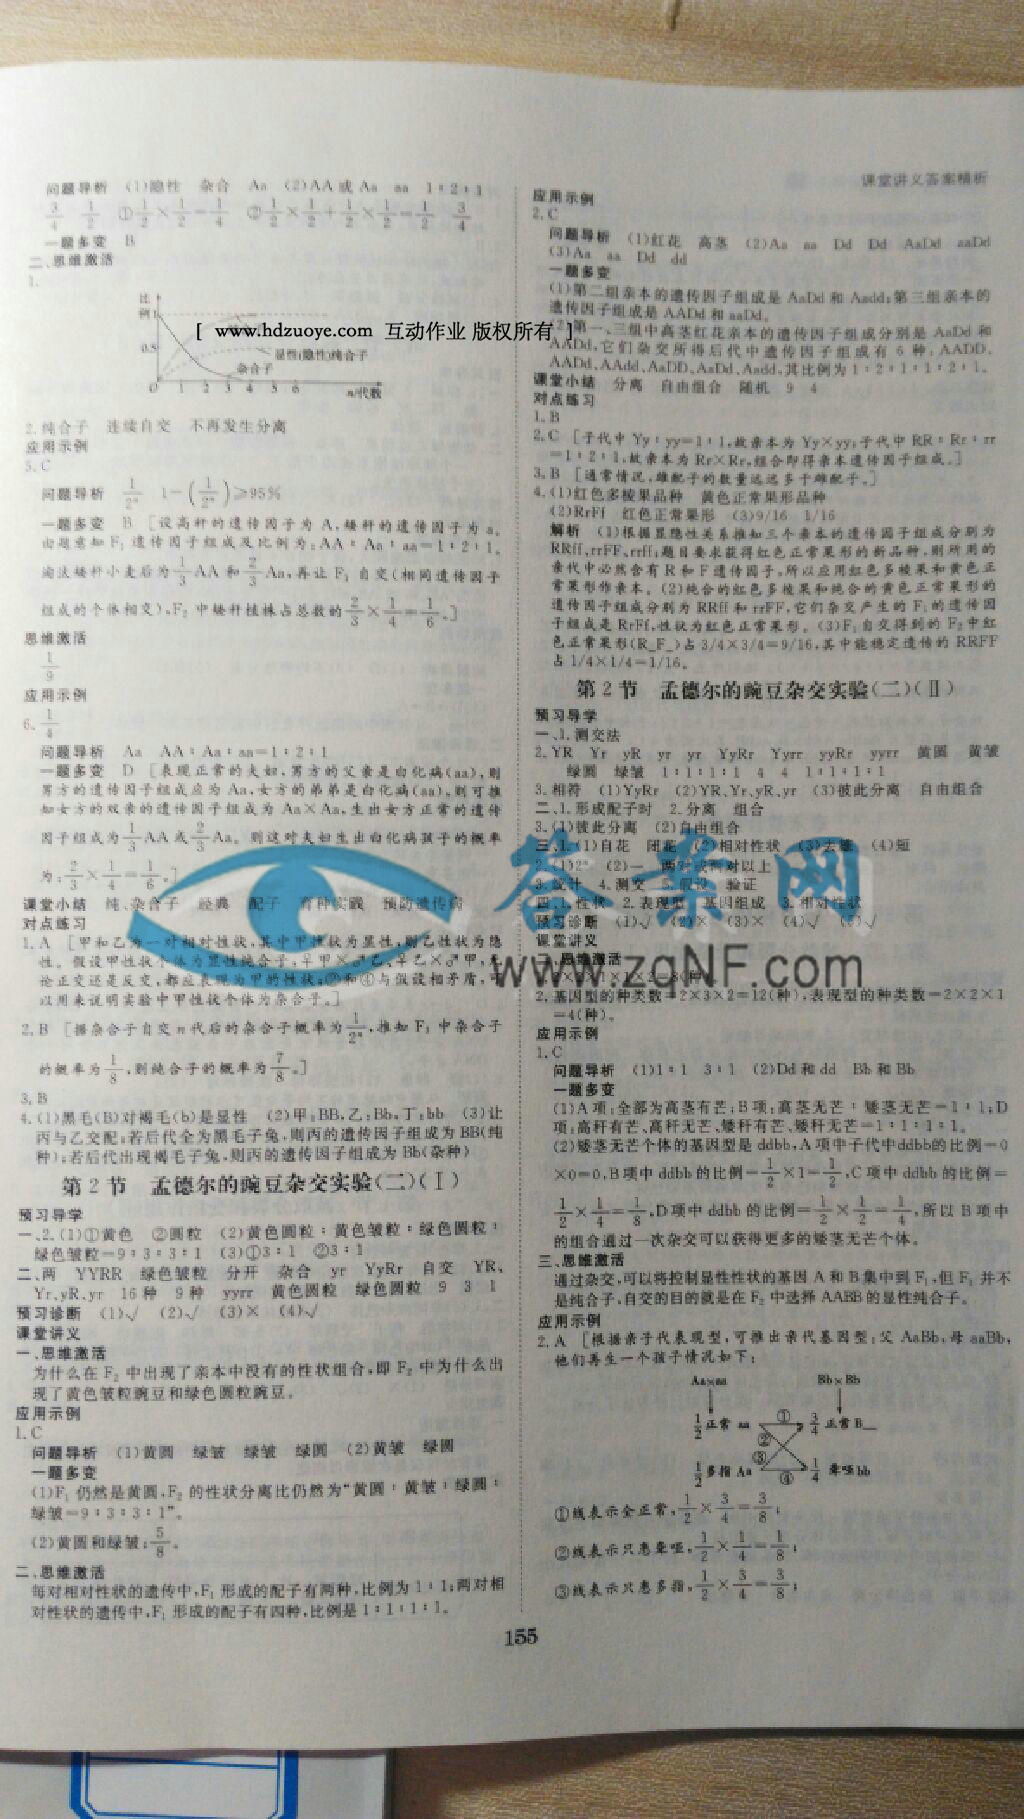 课堂讲义答案精析
问题导析 (1)隐性 杂合 Aa (2)AA或Aa aa 1∶2∶1
3/4 1/2 ①1/2×1/2=1/4 ②1/2×1/2+1/2×1/2=1/2 3/4
一题多变 B
二、思维激活
1.
比例
1
0.5
0 1 2 3 4 5 6 n/代数
显性(隐性)纯合子
杂合子
[ www.hdzuoye.com 互动作业 版权所有 ]
2.纯合子 连续自交 不再发生分离
应用示例
5.C
问题导析 1/2ⁿ 1-(1/2ⁿ)≥95%
一题多变 B [设高秆的遗传因子为A,矮秆的遗传因子为a。
由题意知F₁遗传因子组成及比例为:AA∶Aa∶aa=1∶2∶1。
淘汰矮秆小麦后为1/3AA和2/3Aa,再让F₁自交(相同遗传因子
组成的个体相交),F₂中矮秆植株占总数的2/3×1/4=1/6。]
思维激活
1/9
应用示例
6.1/4
问题导析 Aa AA∶Aa∶aa=1∶2∶1
一题多变 D [表现正常的夫妇,男方的父亲是白化病(aa),则
男方的遗传因子组成应为Aa,女方的弟弟是白化病(aa),则可推
知女方的双亲的遗传因子组成为Aa×Aa,生出女方正常的遗传
因子组成为1/3AA或2/3Aa。则这对夫妇生出白化病孩子的概率
为:2/3×1/4=1/6。]
课堂小结 纯、杂合子 经典 配子 育种实践 预防遗传病
对点练习
1.A [甲和乙为一对相对性状,其中甲性状为显性,则乙性状为隐
性。假设甲性状个体为显性纯合子:♀甲×♂乙,♀乙×♂甲,无
论正交还是反交,都应表现为甲的性状,②和④与假设相矛盾,可
以用来说明实验中甲性状个体为杂合子。]
2.B [据杂合子自交n代后的杂合子概率为1/2ⁿ,推知F₃中杂合子
的概率为1/8,则纯合子的概率为7/8。]
3.B
4.(1)黑毛(B)对褐毛(b)是显性 (2)甲:BB,乙:Bb,丁:bb (3)让
丙与乙交配:若后代全为黑毛子兔,则丙的遗传因子组成为BB(纯
种);若后代出现褐毛子兔,则丙的遗传因子组成为Bb(杂种)
第2节 孟德尔的豌豆杂交实验(二)(Ⅰ)
预习导学
一、2.(1)①黄色 ②圆粒 (2)黄色圆粒∶黄色皱粒∶绿色圆粒∶
绿色皱粒=9∶3∶3∶1 (3)①3∶1 ②3∶1
二、两 YYRR 绿色皱粒 分开 杂合 yr YyRr 自交 YR、
Yr、yR、yr 16种 9种 yyrr 黄色圆粒 绿色圆粒 9 3 1
预习诊断 (1)√ (2)√ (3)× (4)√
课堂讲义
一、思维激活
为什么在F₂中出现了亲本中没有的性状组合,即F₂中为什么出
现了黄色皱粒豌豆和绿色圆粒豌豆。
应用示例
1.C
问题导析 (1)黄圆 绿皱 绿皱 绿圆 (2)黄皱 绿圆
一题多变
(1)F₁仍然是黄圆,F₂的性状分离比仍然为“黄圆∶黄皱∶绿圆∶
绿皱=9∶3∶3∶1”。
(2)黄圆和绿皱;5/8。
二、思维激活
每对相对性状的遗传中,F₁形成的配子有两种,比例为1∶1;两对相
对性状的遗传中,F₁形成的配子有四种,比例是1∶1∶1∶1。
应用示例
2.C
问题导析 (1)红花 高茎 (2)Aa aa Dd Dd AaDd aaDd
(3)Aa aa Dd dd
一题多变
(1)第二组亲本的遗传因子组成是AaDd和Aadd;第三组亲本的
遗传因子组成是AADd和aaDd。
(2)第一、三组中高茎红花亲本的遗传因子组成分别是AaDd和
AADd,它们杂交所得后代中遗传因子组成有6种:AADD、
AADd、AAdd、AaDD、AaDd、Aadd,其比例为1∶2∶1∶1∶2∶1。
课堂小结 分离 自由组合 随机 9 4
对点练习
1.B
2.C [子代中Yy∶yy=1∶1,故亲本为Yy×yy;子代中RR∶Rr∶rr
=1∶2∶1,故亲本为Rr×Rr,组合即得亲本遗传因子组成。]
3.B [通常情况,雄配子的数量远远多于雌配子。]
4.(1)红色多棱果品种 黄色正常果形品种
(2)RrFf 红色正常果形 (3)9/16 1/16
解析 (1)根据显隐性关系推知三个亲本的遗传因子组成分别为
RRff、rrFF、rrff;题目要求获得红色正常果形的新品种,则所用的
亲代中必然含有R和F遗传因子,所以应用红色多棱果和黄色正
常果形作亲本。(2)纯合的红色多棱果和纯合的黄色正常果形的
遗传因子组成分别为RRff和rrFF,它们杂交产生的F₁的遗传因
子组成是RrFf,性状为红色正常果形。(3)F₁自交得到的F₂中红
色正常果形(R_F_)占3/4×3/4=9/16,其中能稳定遗传的RRFF
占1/4×1/4=1/16。
第2节 孟德尔的豌豆杂交实验(二)(Ⅱ)
预习导学
一、1.测交法
2.YR Yr yR yr yr YyRr Yyrr yyRr yyrr 黄圆 黄皱
绿圆 绿皱 1∶1∶1∶1 4 4 1∶1∶1∶1
3.相符 (1)YyRr (2)YR、Yr、yR、yr (3)彼此分离 自由组合
二、1.形成配子时 2.分离 组合
3.(1)彼此分离 (2)自由组合
三、1.(1)自花 闭花 (2)相对性状 (3)去雄 (4)短
2.(1)2ⁿ (2)一 两对或两对以上
3.统计 4.测交 5.假设 验证
四、1.性状 2.表现型 基因组成 3.相对性状
预习诊断 (1)√ (2)× (3)× (4)√ (5)√
课堂讲义
二、思维激活
2×2×1×1×2=8(种)
2.基因型的种类数=2×3×2=12(种),表现型的种类数=2×2×1
=4(种)。
应用示例
1.C
问题导析 (1)1∶1 3∶1 (2)Dd和dd Bb和Bb
一题多变
(1)A项:全部为高茎有芒;B项:高茎无芒∶矮茎无芒=1∶1;D
项:高秆有芒、高秆无芒、矮秆有芒、矮秆无芒=1∶1∶1∶1。
(2)矮茎无芒个体的基因型是ddbb,A项中子代中ddbb的比例=0
×0=0,B项中ddbb的比例=1/2×1=1/2,C项中ddbb的比例=
1/2×1/4=1/8,D项中ddbb的比例=1/2×1/2=1/4,所以B项中
的组合通过一次杂交可以获得更多的矮茎无芒个体。
三、思维激活
通过杂交,可以将控制显性性状的基因A和B集中到F₁,但F₁并不
是纯合子,自交的目的就是在F₂中选择AABB的显性纯合子。
应用示例
2.A [根据亲子代表现型,可推出亲代基因型:父AaBb,母aaBb,
他们再生一个孩子情况如下:
Aa×aa Bb×Bb
1/2正常 aa ① 3/4正常B_
②
③
1/2多指Aa ④ 1/4聋哑bb
①线表示全正常,1/2×3/4=3/8;
②线表示只患聋哑,1/2×1/4=1/8;
③线表示只患多指,1/2×3/4=3/8;
155
答案网
www.zqNF.com